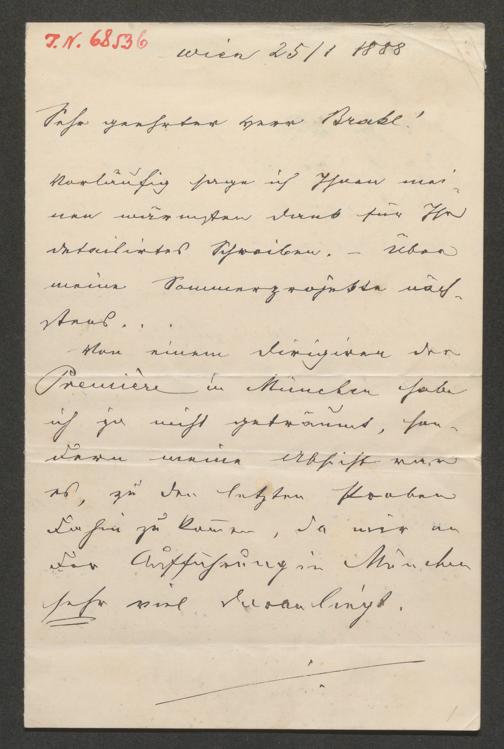 I. N. 68536
Wien 25/1 1888
Sehr geehrter Herr Brakl!
Vorläufig sage ich Ihnen mei-
nen wärmsten Dank für Ihr
detailirtes Schreiben. – Über
meine Sommerprojekte näch-
stens...
Von einem Dirigiren der
Première in München habe
ich ja nicht geträumt, son-
dern meine Absicht war
es, zu den letzten Proben
dahin zu kommen, da mir an
der Aufführung in München
sehr viel daran liegt.